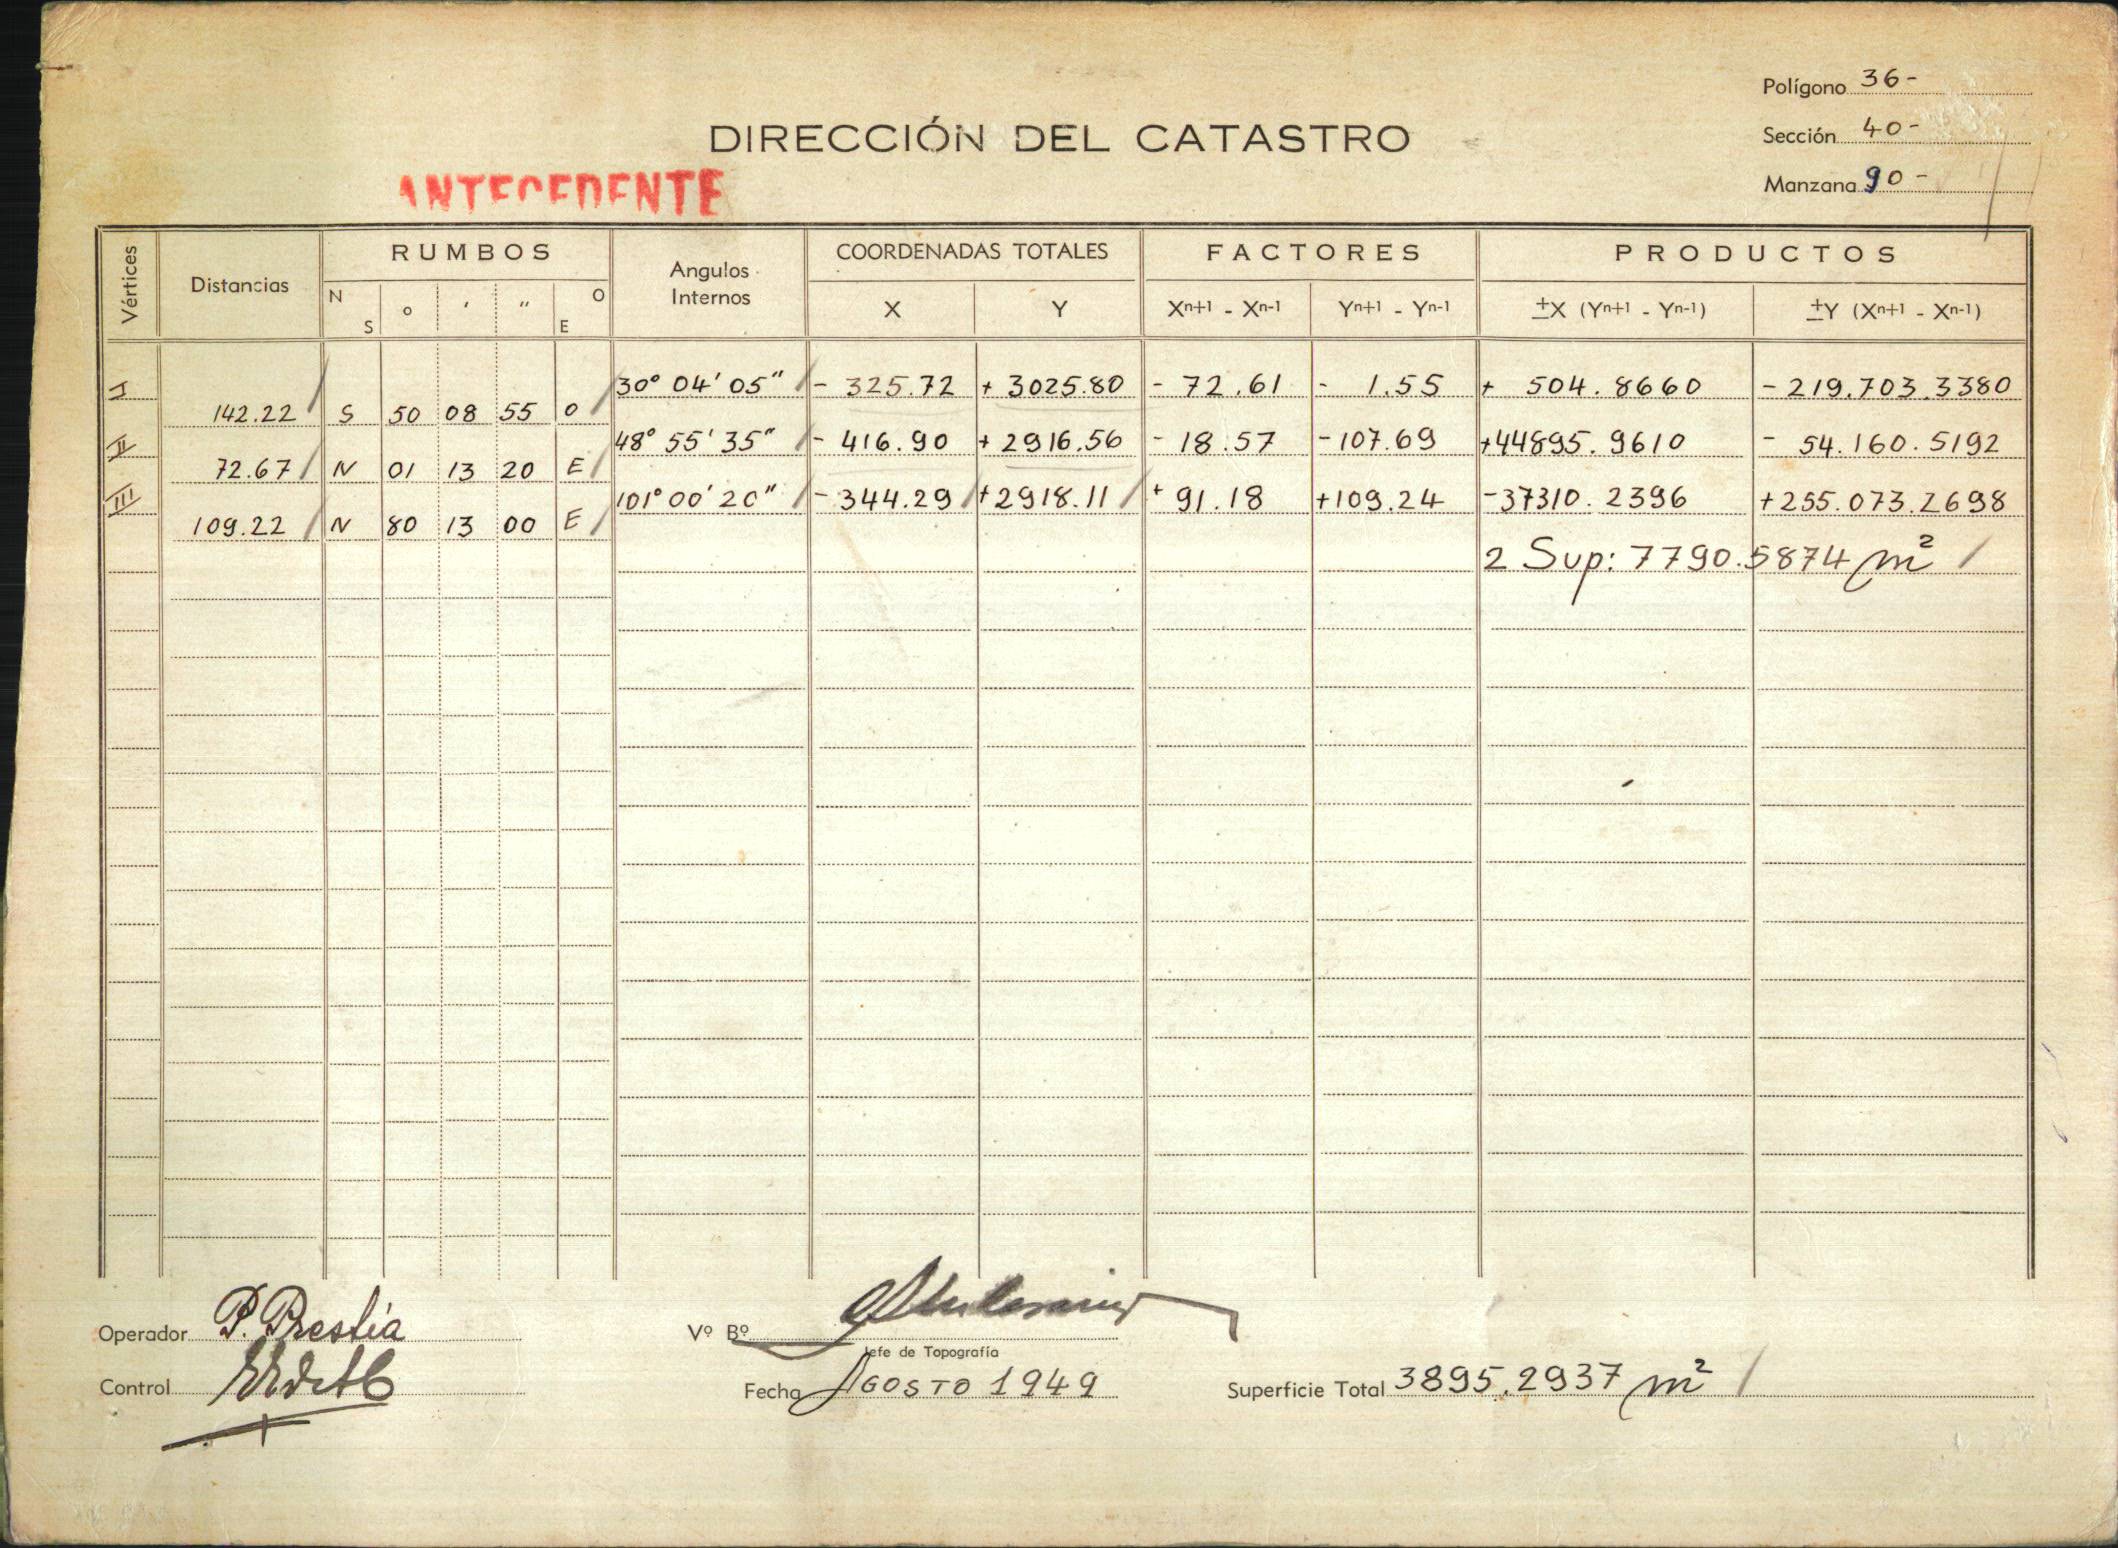 Polígono 36-
DIRECCIÓN DEL CATASTRO
Sección 40-
ANTECEDENTE
Manzana 90-
Vértices Distancias RUMBOS Angulos Internos COORDENADAS TOTALES FACTORES PRODUCTOS
N S ° ' " O E X Y Xn+1 - Xn-1 Yn+1 - Yn-1 ±X (Yn+1 - Yn-1) ±Y (Xn+1 - Xn-1)
I 30° 04' 05" - 325.72 + 3025.80 - 72.61 - 1.55 + 504.8660 - 219.703.3380
142.22 S 50 08 55 O
II 48° 55' 35" - 416.90 + 2916.56 - 18.57 -107.69 +44895.9610 - 54.160.5192
72.67 N 01 13 20 E
III 101° 00' 20" - 344.29 +2918.11 + 91.18 +109.24 -37310.2396 +255.073.2698
109.22 N 80 13 00 E
2 Sup: 7790.5874 m²
Operador P. Prestia
Vº Bº
Jefe de Topografía
Control
Fecha AGOSTO 1949
Superficie Total 3895.2937 m²